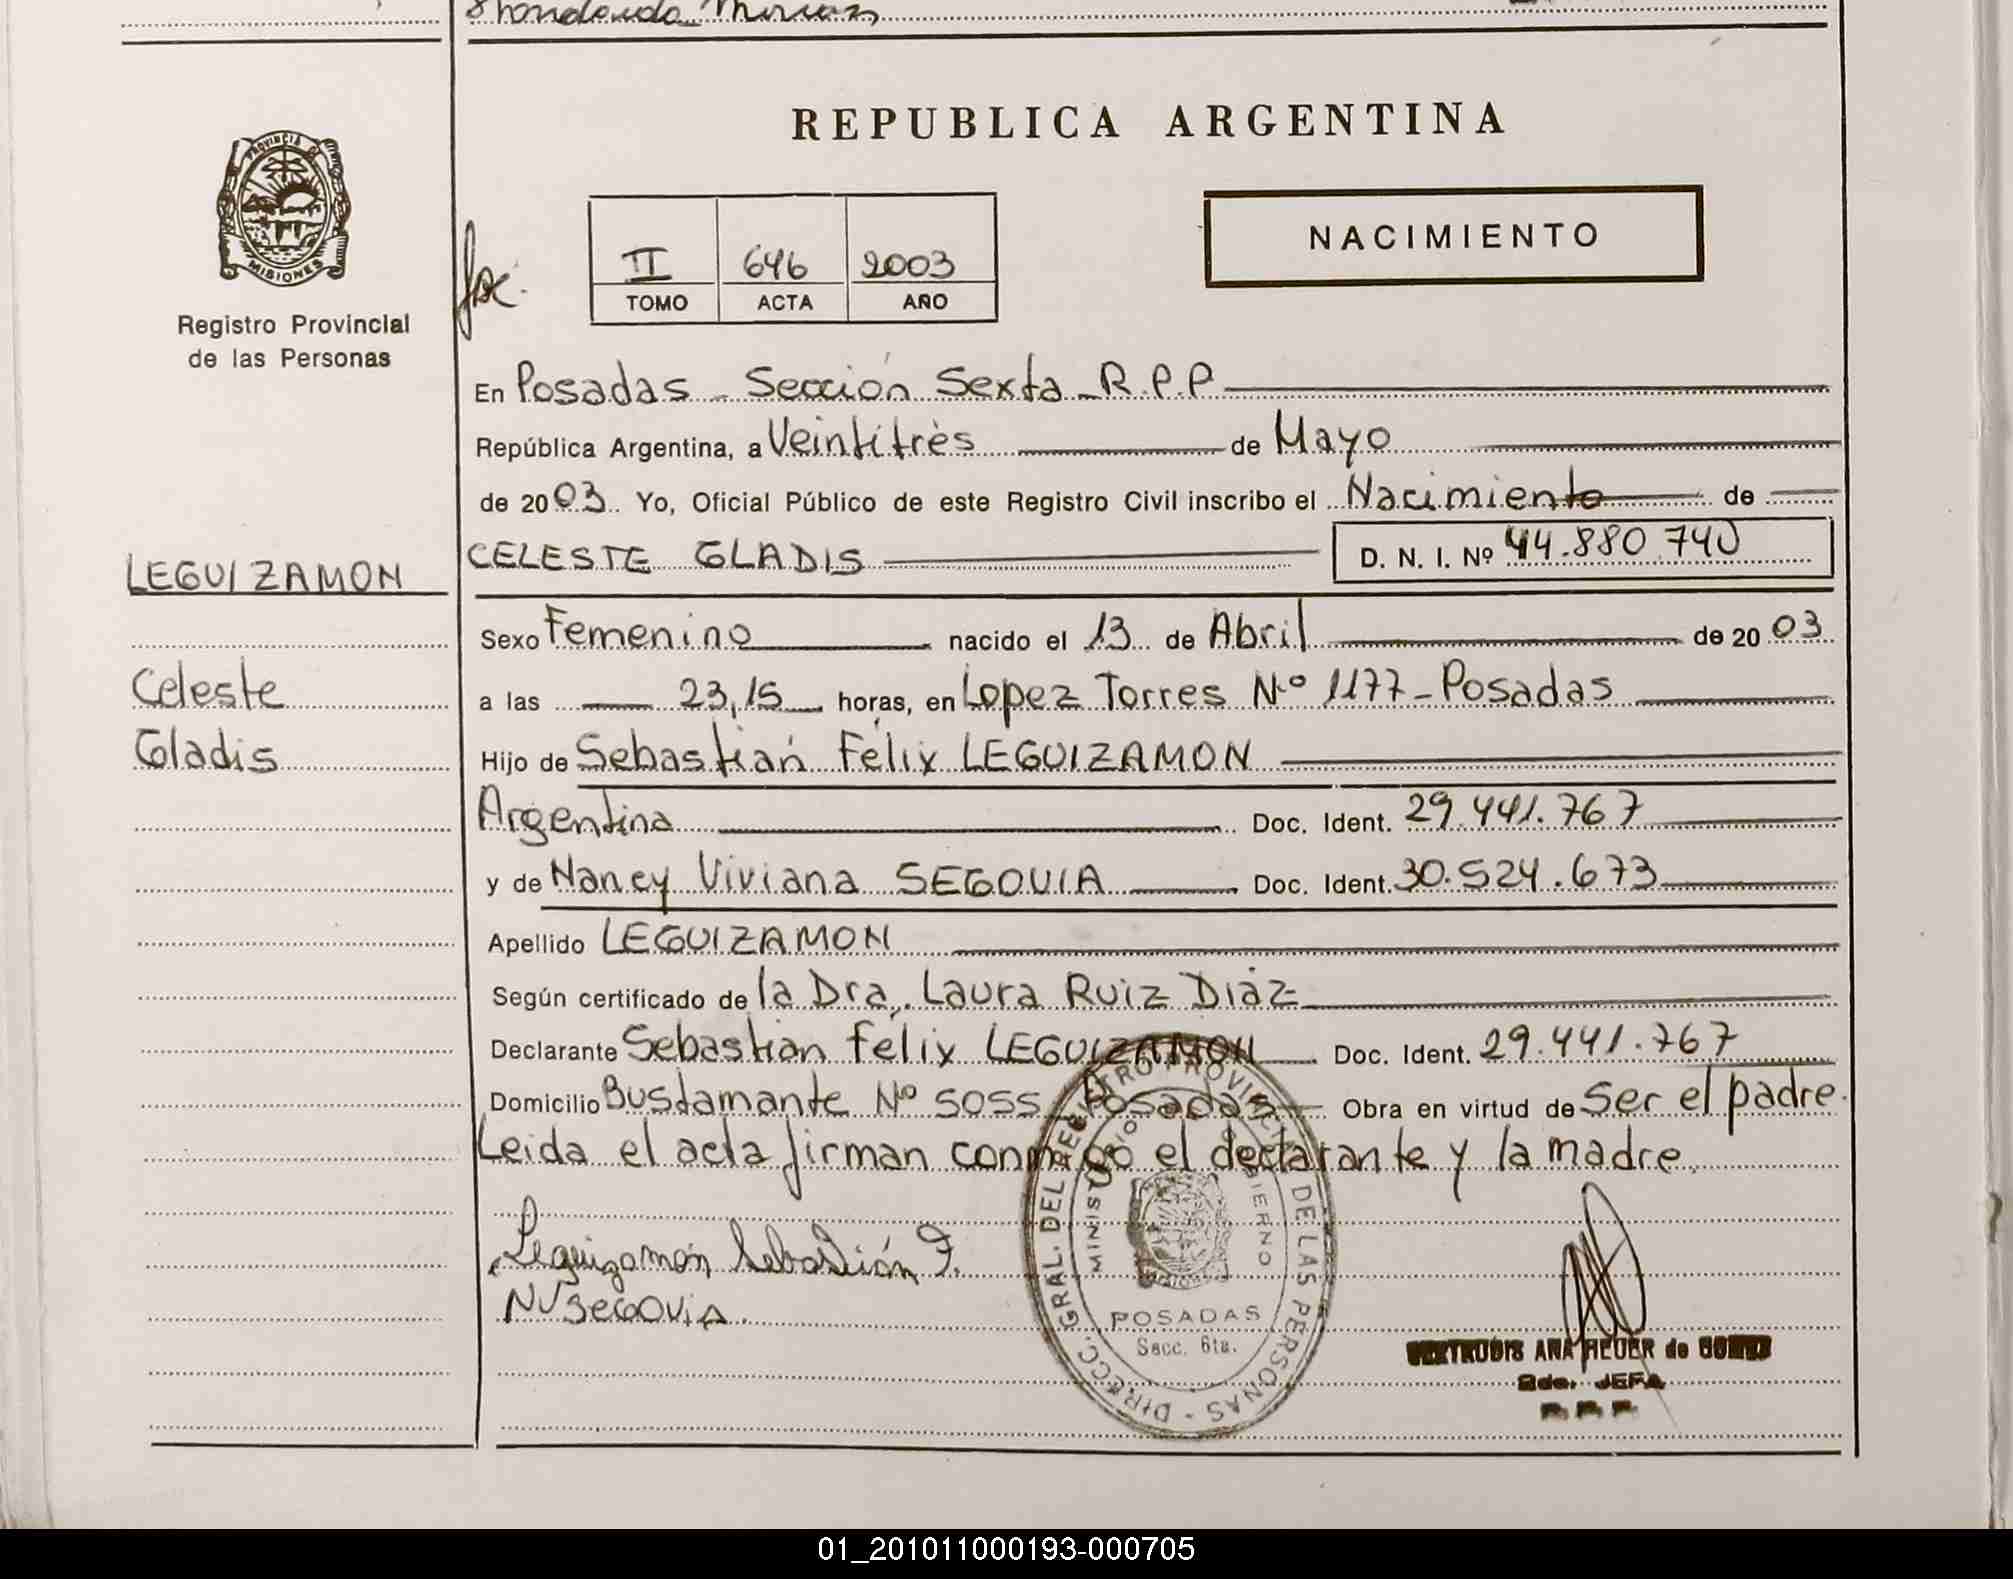 REPUBLICA ARGENTINA
PROVINCIA DE
MISIONES
Registro Provincial
de las Personas
II 646 2003
TOMO ACTA AÑO
NACIMIENTO
En Posadas - Sección Sexta - R.P.P
República Argentina, a Veintitrès de Mayo
de 2003. Yo, Oficial Público de este Registro Civil inscribo el Nacimiento de
LEGUIZAMON
CELESTE GLADIS D. N. I. Nº 44.880.740
Sexo Femenino nacido el 13 de Abril de 2003
Celeste
a las 23,15 horas, en Lopez Torres Nº 1177 - Posadas
Gladis
Hijo de Sebastián Félix LEGUIZAMON
Argentina Doc. Ident. 29.441.767
y de Nancy Viviana SEGOVIA Doc. Ident. 30.524.673
Apellido LEGUIZAMON
Según certificado de la Dra. Laura Ruiz Diáz
Declarante Sebastián Félix LEGUIZAMON Doc. Ident. 29.441.767
Domicilio Bustamante Nº 5055 - Posadas - Obra en virtud de Ser el padre.
Leida el acta firman conmigo el declarante y la madre.
Leguizamón Sebastián F.
NV SEGOVIA.
DIRECC. GRAL. DEL REGISTRO PROVINCIAL DE LAS PERSONAS
POSADAS
Secc. 6ta.
GERTRUDIS ANA HEUER de GOMEZ
2da. JEFA
R. P. P.
01_201011000193-000705